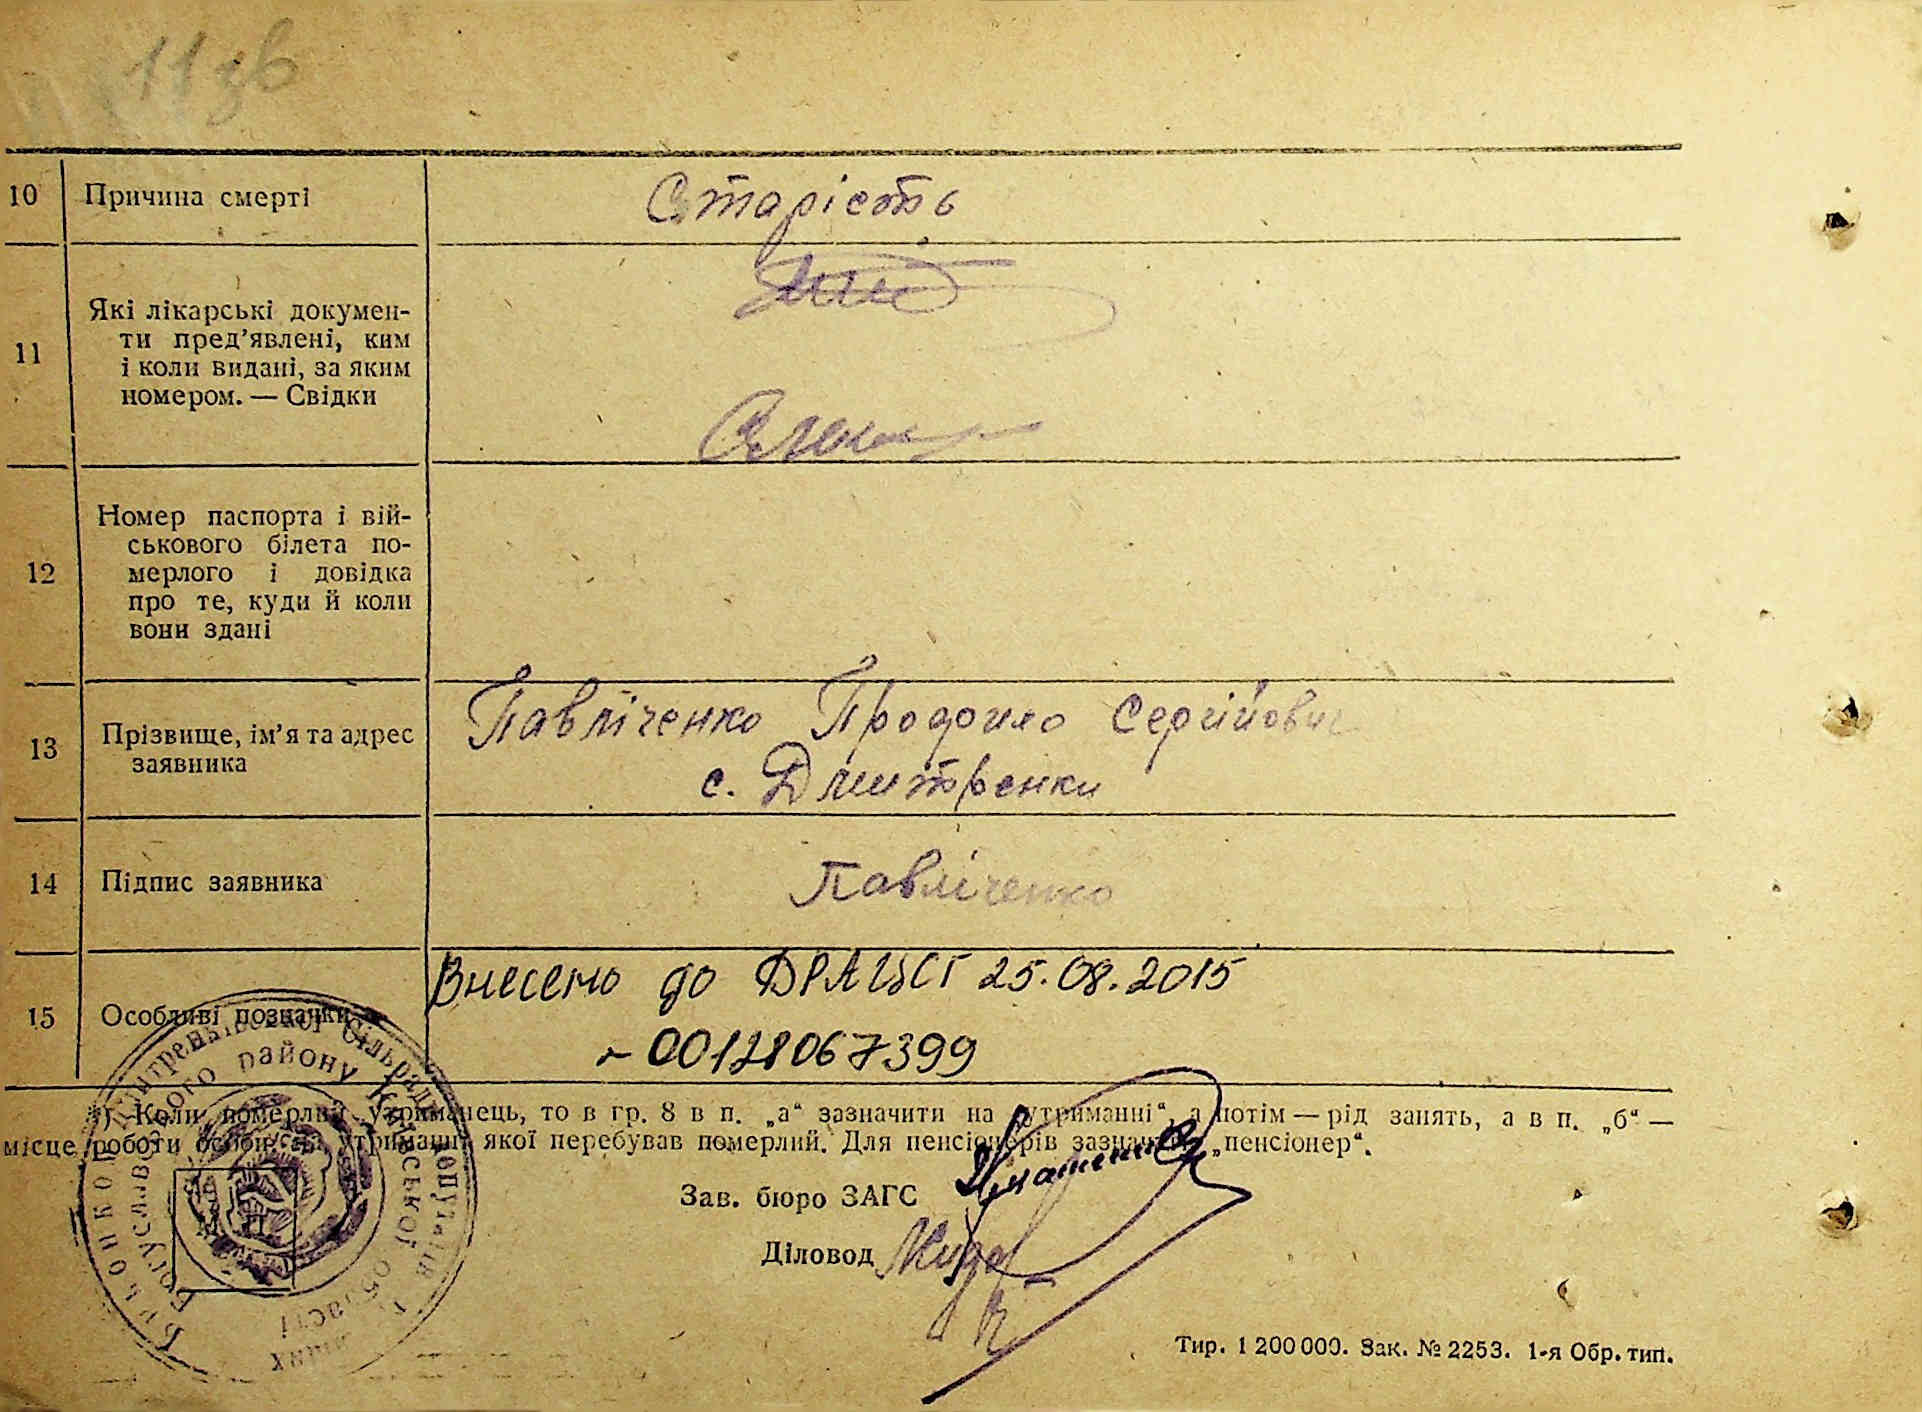 11зв
10 Причина смерті Старість
11 Які лікарські докумен-
ти пред’явлені, ким
і коли видані, за яким
номером. — Свідки
12 Номер паспорта і вій-
ськового білета по-
мерлого і довідка
про те, куди й коли
вони здані
13 Прізвище, ім’я та адрес
заявника
Павліченко Сергійович
с. Дмитренки
14 Підпис заявника Павліченко
15 Особливі позначки
Внесено до ДРАЦСГ 25.08.2015
00128067399
*) Коли померлий утриманець, то в гр. 8 в п. „а“ зазначити на „утриманні“, а потім — рід занять, а в п. „б“ —
місце роботи особи, на утриманні якої перебував померлий. Для пенсіонерів зазначати „пенсіонер“.
Зав. бюро ЗАГС
Діловод
Виконком Дмитренківської сільради депутатів трудящих
Богуславського району Київської області
Тир. 1 200 000. Зак. № 2253. 1-я Обр. тип.